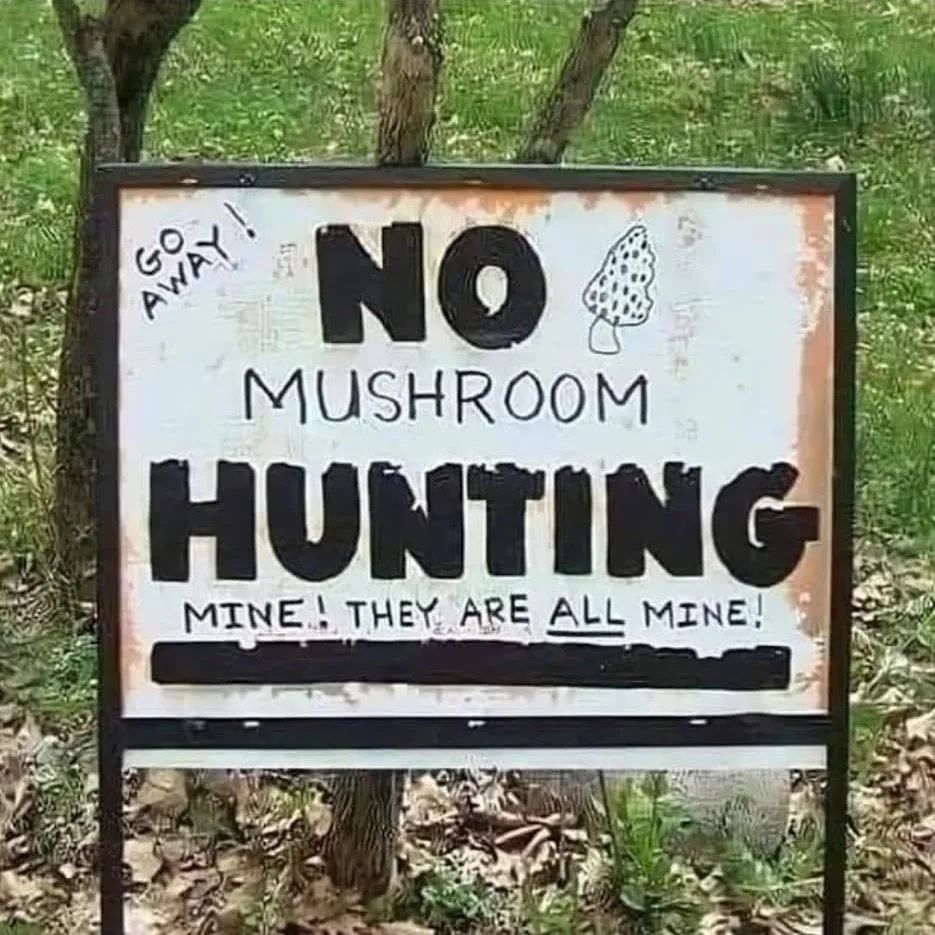 GO
AWAY!
NO
MUSHROOM
HUNTING
MINE! THEY ARE ALL MINE!